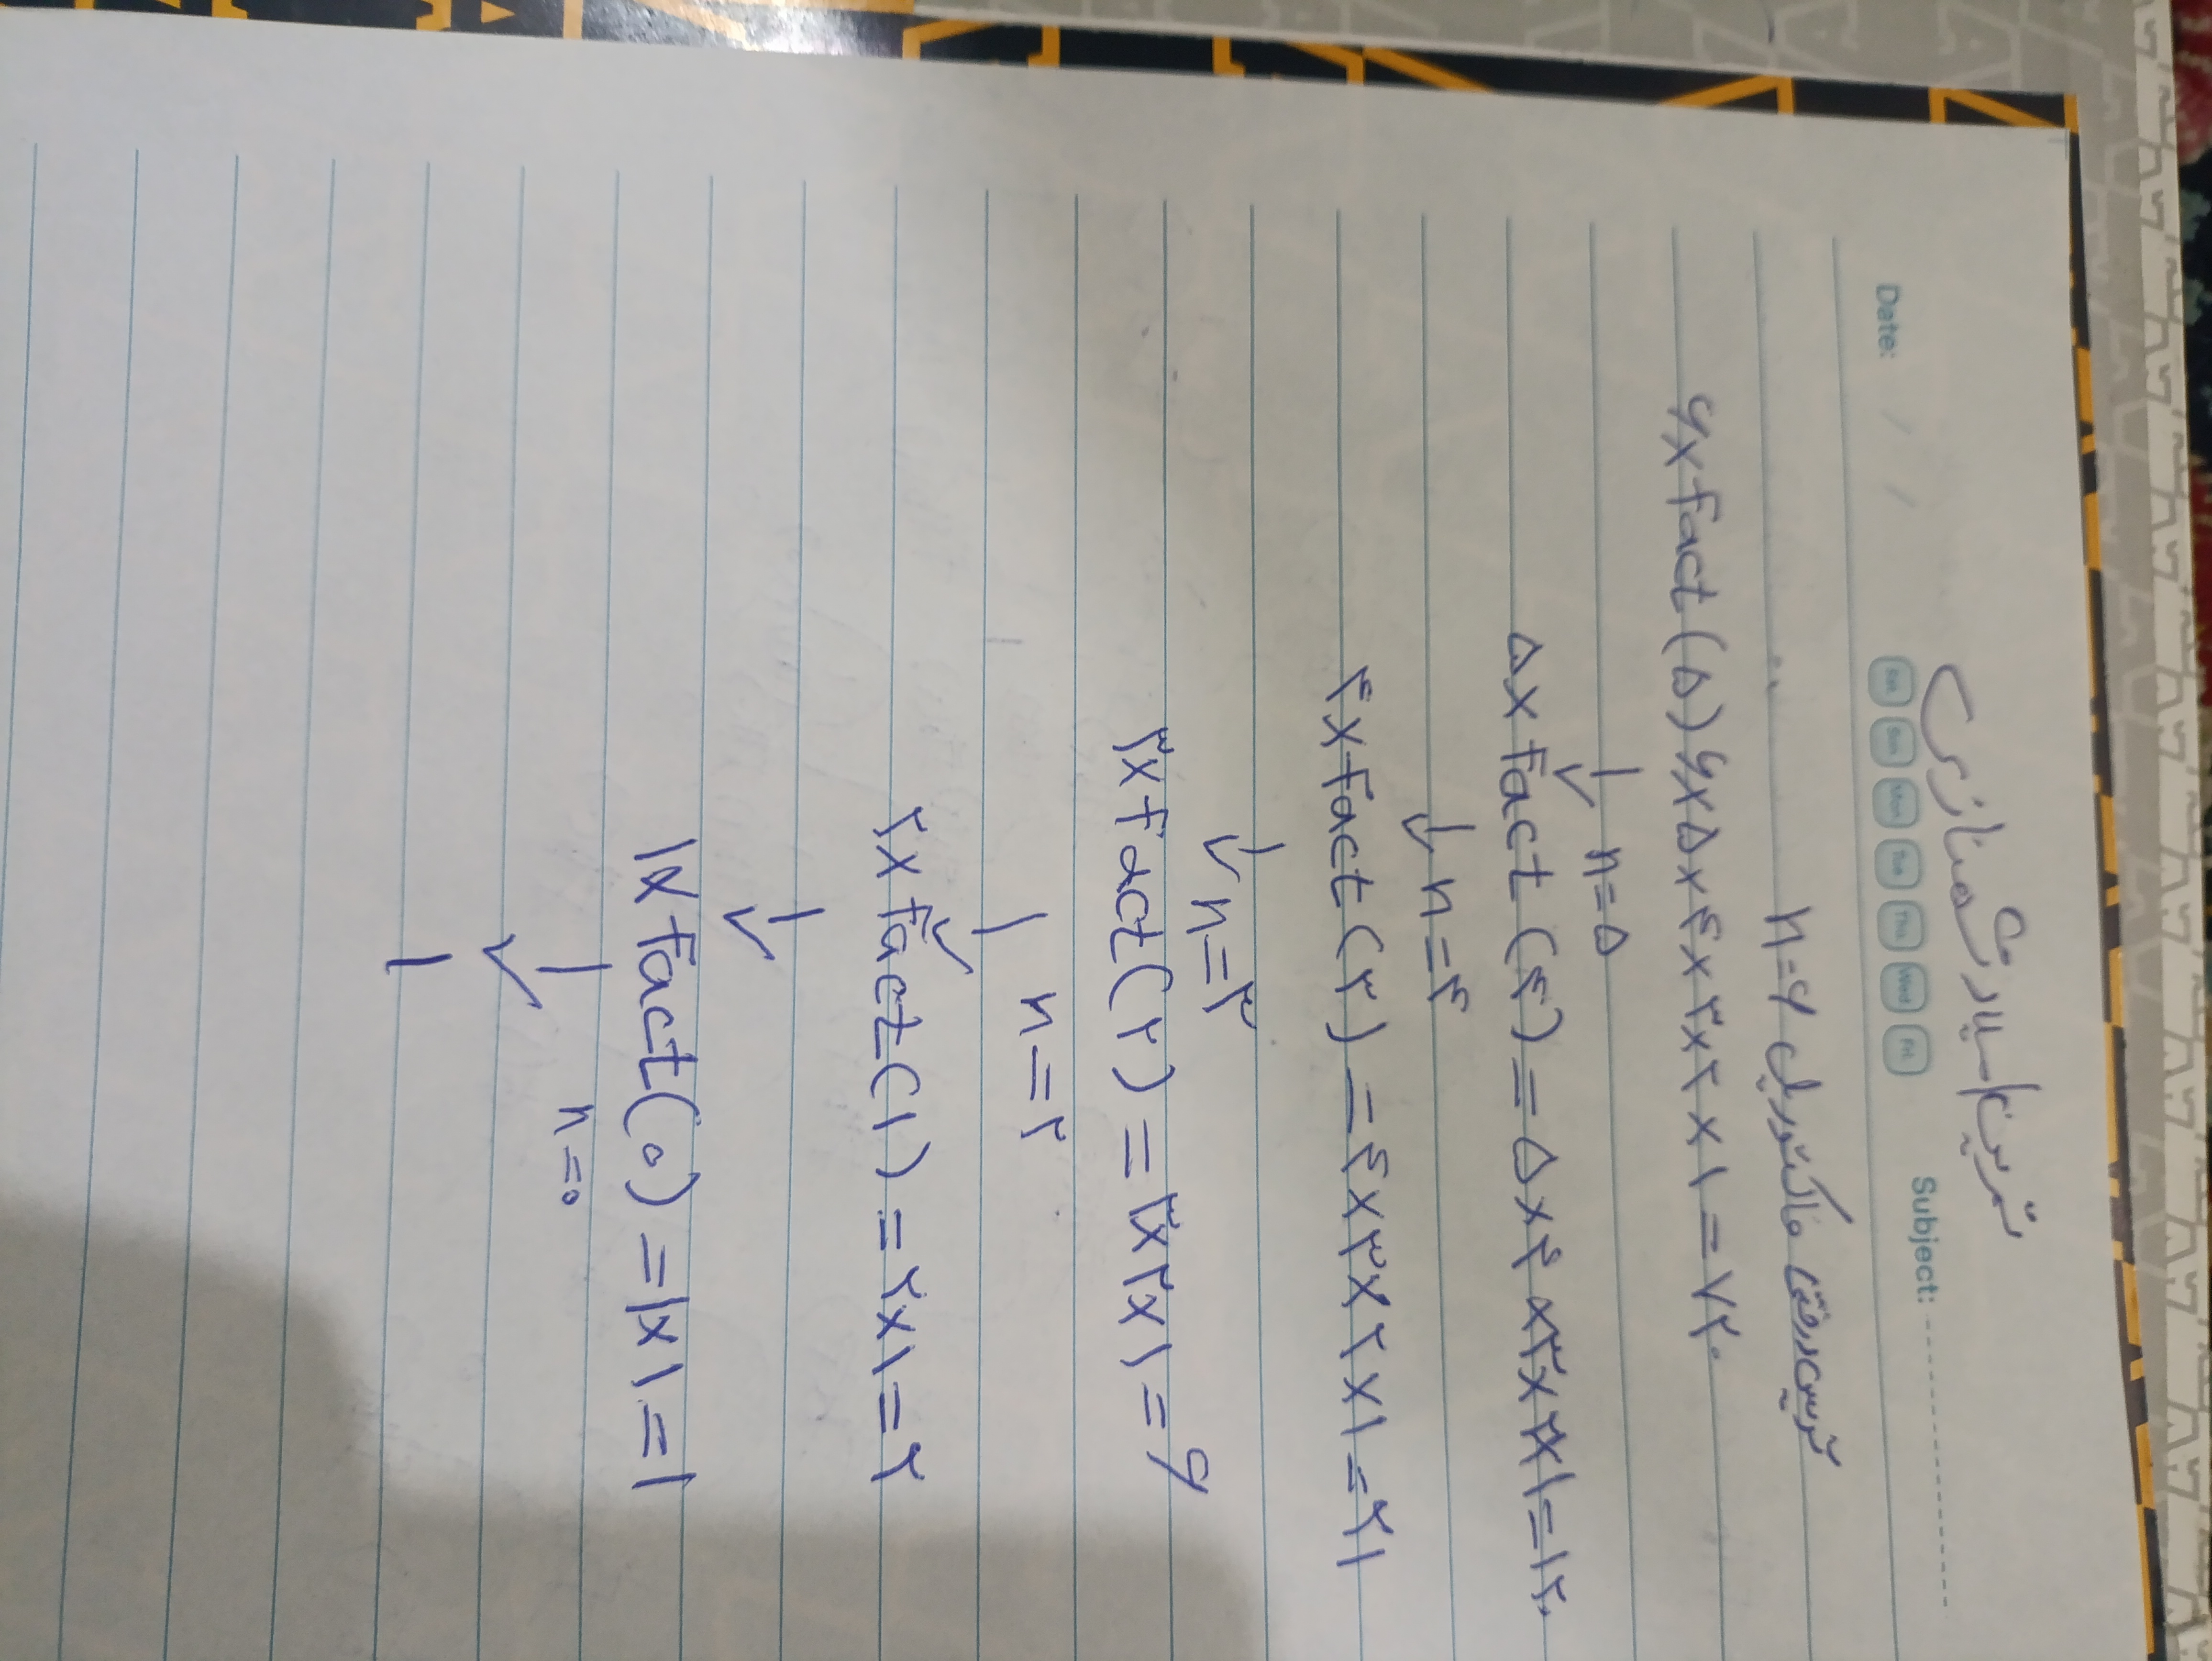 تمرین ۱ - سیادرشمنازی
Date: / / Sat Sun Mon Tue Thu Wed Fri Subject:
تریس درختی فاکتوریل n=۶
۶×fact(۵) ۶×۵×۴×۳×۲×۱=۷۲۰
n=۵
۵×fact(۴)=۵×۴×۳×۲×۱=۱۲۰
n=۴
۴×fact(۳)=۴×۳×۲×۱=۲۱
n=۳
۳×fact(۲)=۳×۲×۱=۶
n=۲
۲×fact(۱)=۲×۱=۲
۱×fact(۰)=۱×۱=۱
n=۰
۱